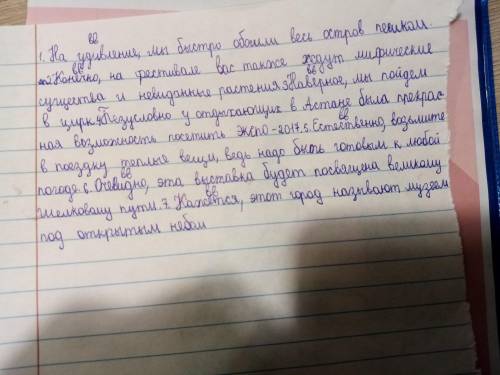 вв
1. На удивление, мы быстро обошли весь остров пешком.
вв
2. Конечно, на фестивале вас также ждут мифические
вв
существа и невиданные растения. 3. Наверное, мы пойдем
в цирк. 4. Безусловно у отдыхающих в Астане была прекрас
вв
ная возможность посетить экспо-2017. 5. Естественно, возьмите
в поездку теплые вещи, ведь надо быть готовым к любой
вв
погоде. 6. Очевидно, эта выставка будет посвящена великому
вв
шелковому пути. 7. Кажется, этот город называют музеем
под открытым небом